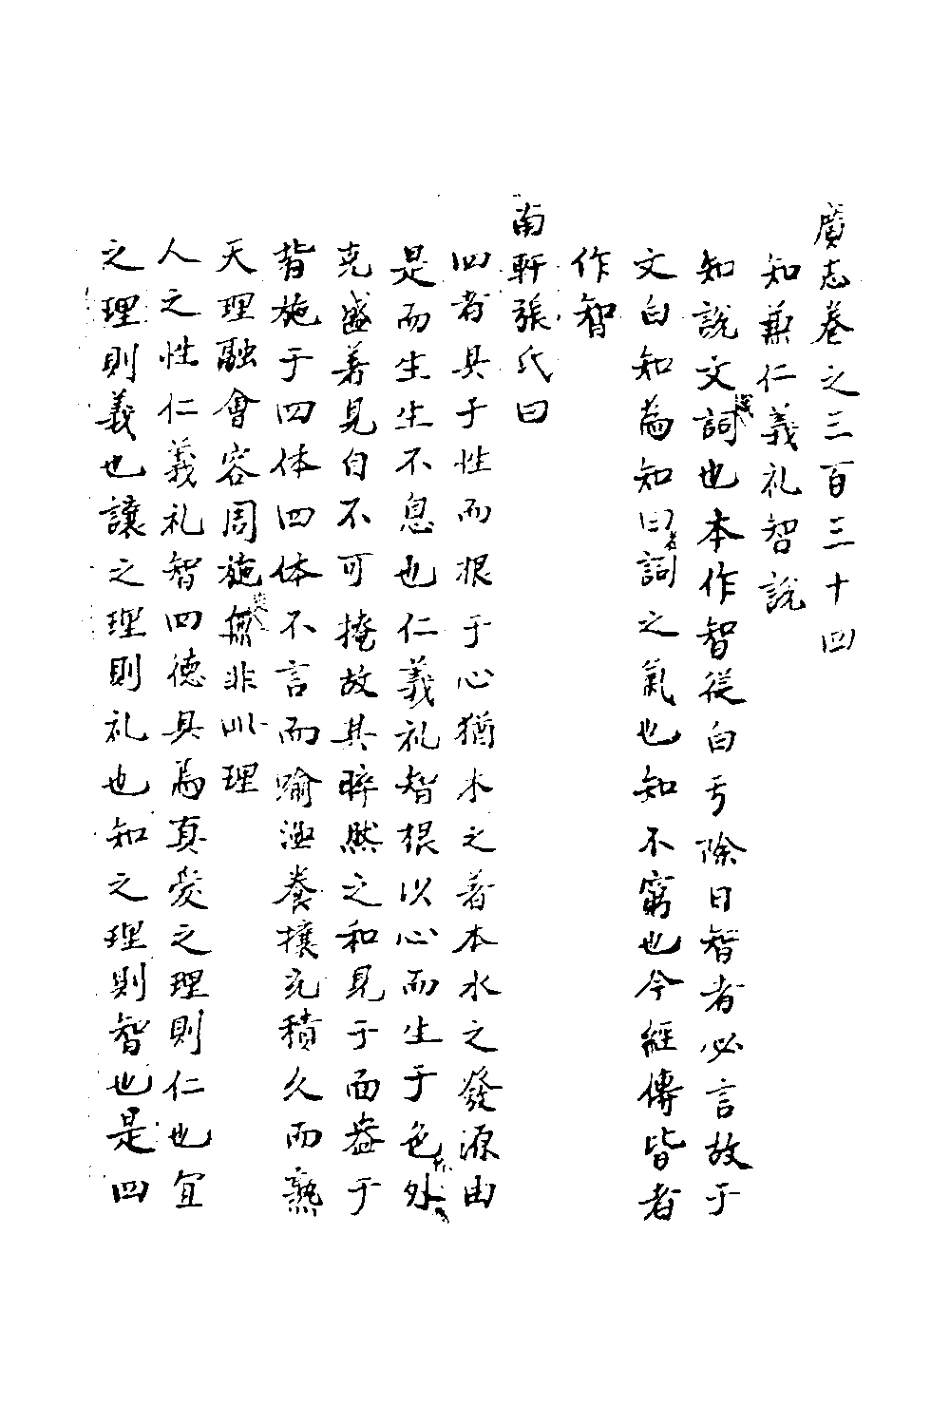 廣志卷之三百三十四
知兼仁義礼智說
知說文詞也本作智從白亐除日智者必言故于
文白知為知曰者詞之氣也知不窮也今經傳皆者
作智
南軒張氏曰
四者具于性而根于心猶木之著本水之發源由
是而生生不息也仁義礼智根以心而生于色外
充盛著見自不可掩故其睟然之和見于面盎于
背施于四体四体不言而喻涵養擴充積久而熟
天理融會容周施無非此理
人之性仁義礼智四德具焉真愛之理則仁也宜
之理則義也讓之理則礼也知之理則智也是四